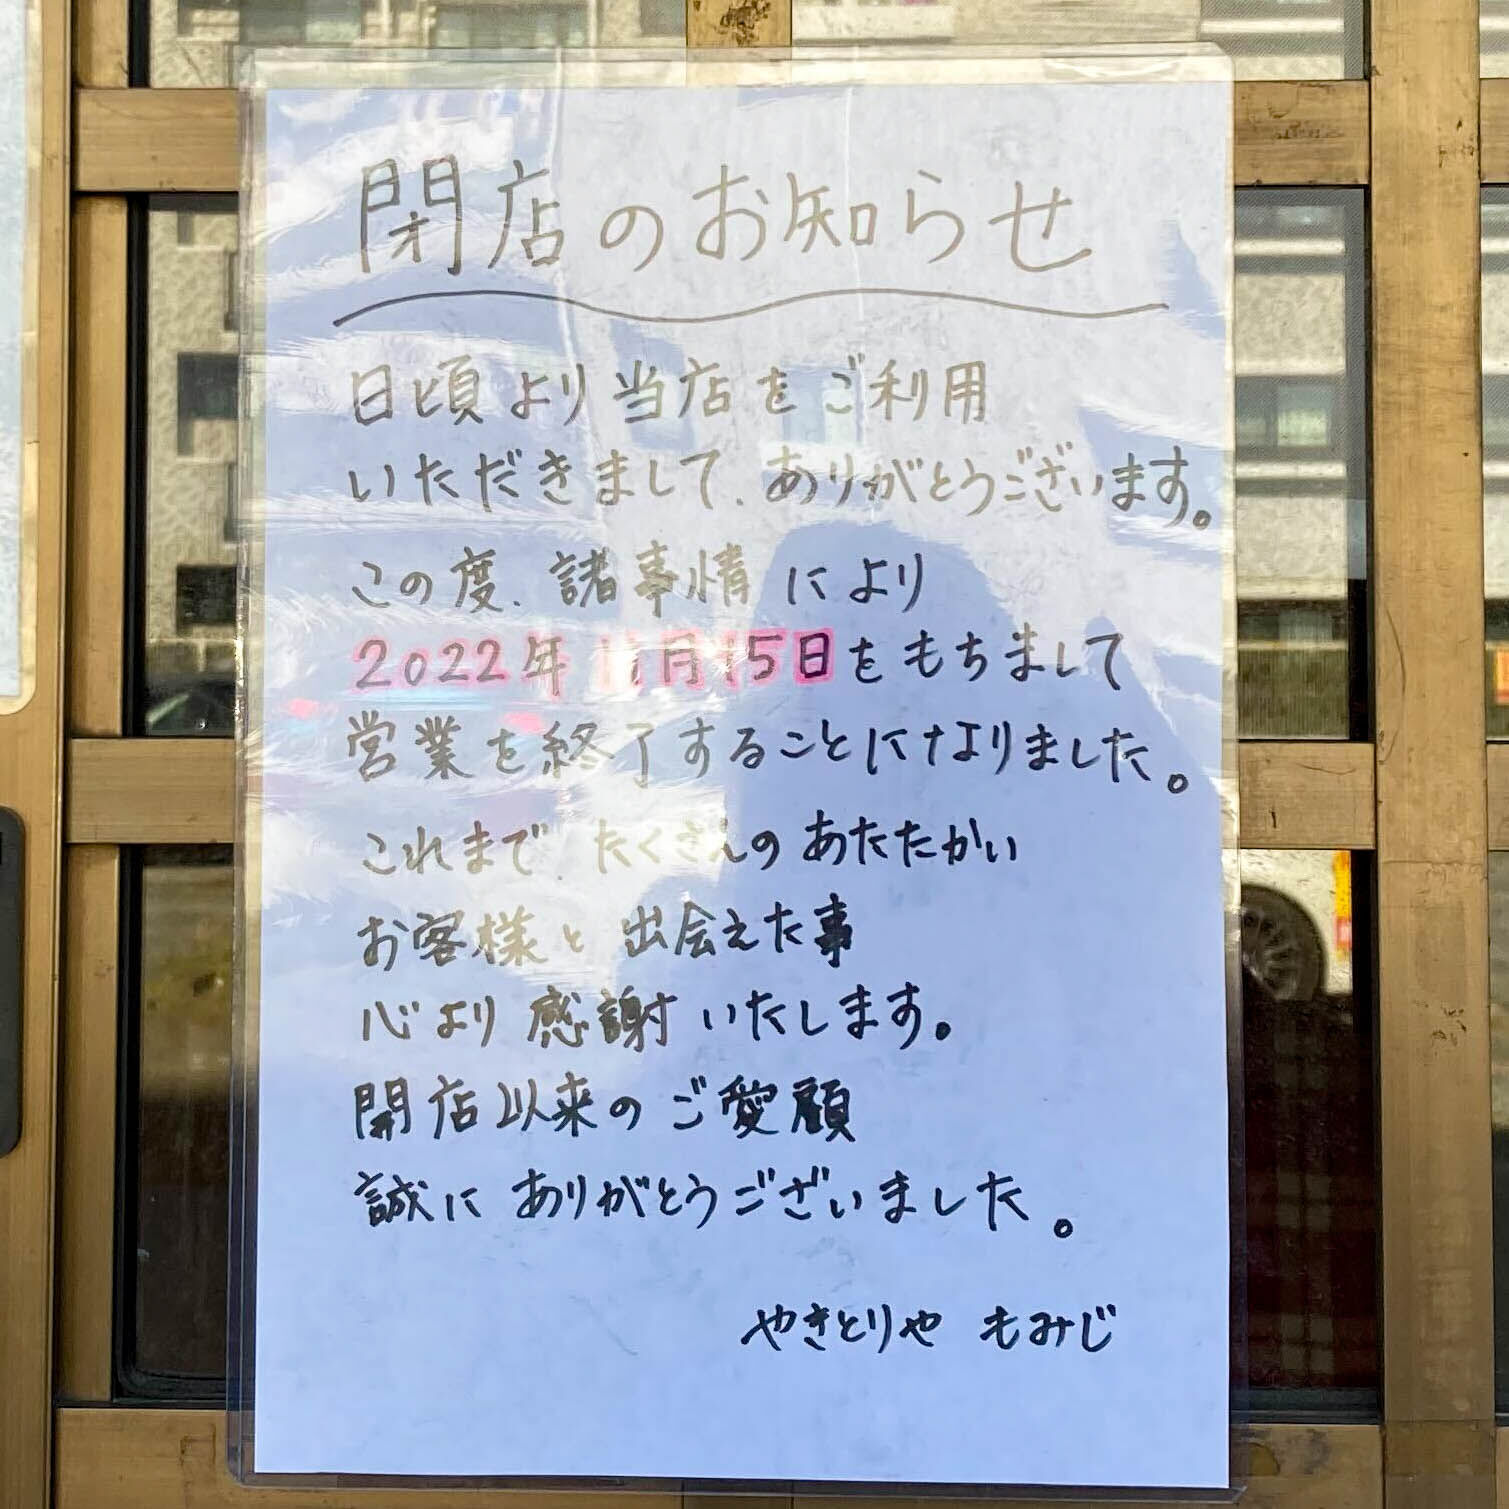 閉店のお知らせ
日頃より当店をご利用
いただきまして、ありがとうございます。
この度、諸事情により
2022年11月15日をもちまして
営業を終了することになりました。
これまで、たくさんのあたたかい
お客様と出会えた事
心より感謝いたします。
開店以来のご愛顧
誠にありがとうございました。
やきとりや もみじ